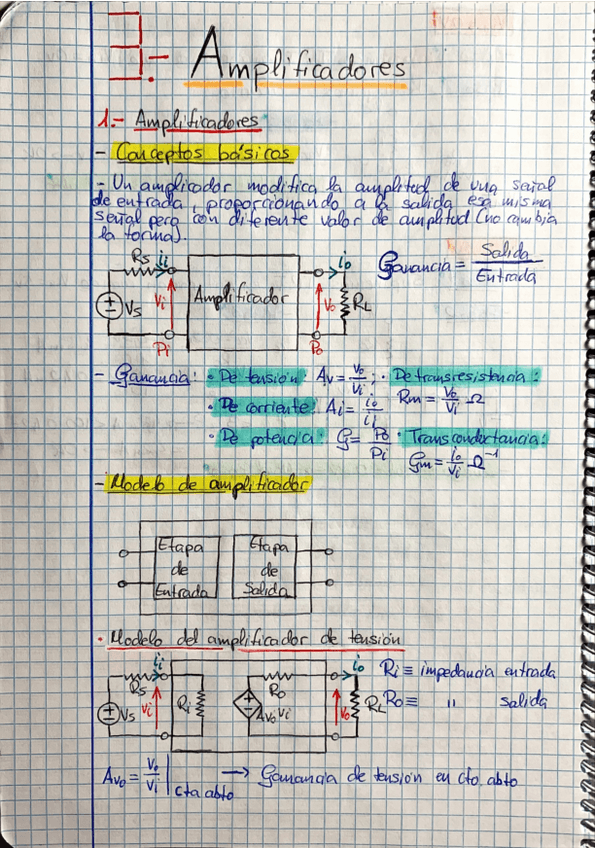 3.- Amplificadores
1.- Amplificadores
- Conceptos básicos
- Un amplicador modifica la amplitud de una señal
de entrada, proporcionando a la salida esa misma
señal pero con diferente valor de amplitud (no cambia
la forma).
Rs ii io
Vs Vi Amplificador Vo RL
Pi Po
Ganancia = Salida / Entrada
- Ganancia: · De tensión: Av = Vo/Vi ; · De transresistencia:
Rm = Vo/Vi Ω
· De corriente: Ai = io/ii
· De potencia: G = Po/Pi · Transconductancia:
Gm = io/Vi Ω⁻¹
- Modelo de amplificador
Etapa de Entrada
Etapa de Salida
· Modelo del amplificador de tensión
Rs ii Ro io
Vs Vi Ri Avo Vi Vo RL
Ri ≡ impedancia entrada
Ro ≡ " salida
Avo = Vo/Vi | cta abto → Ganancia de tensión en cto. abto